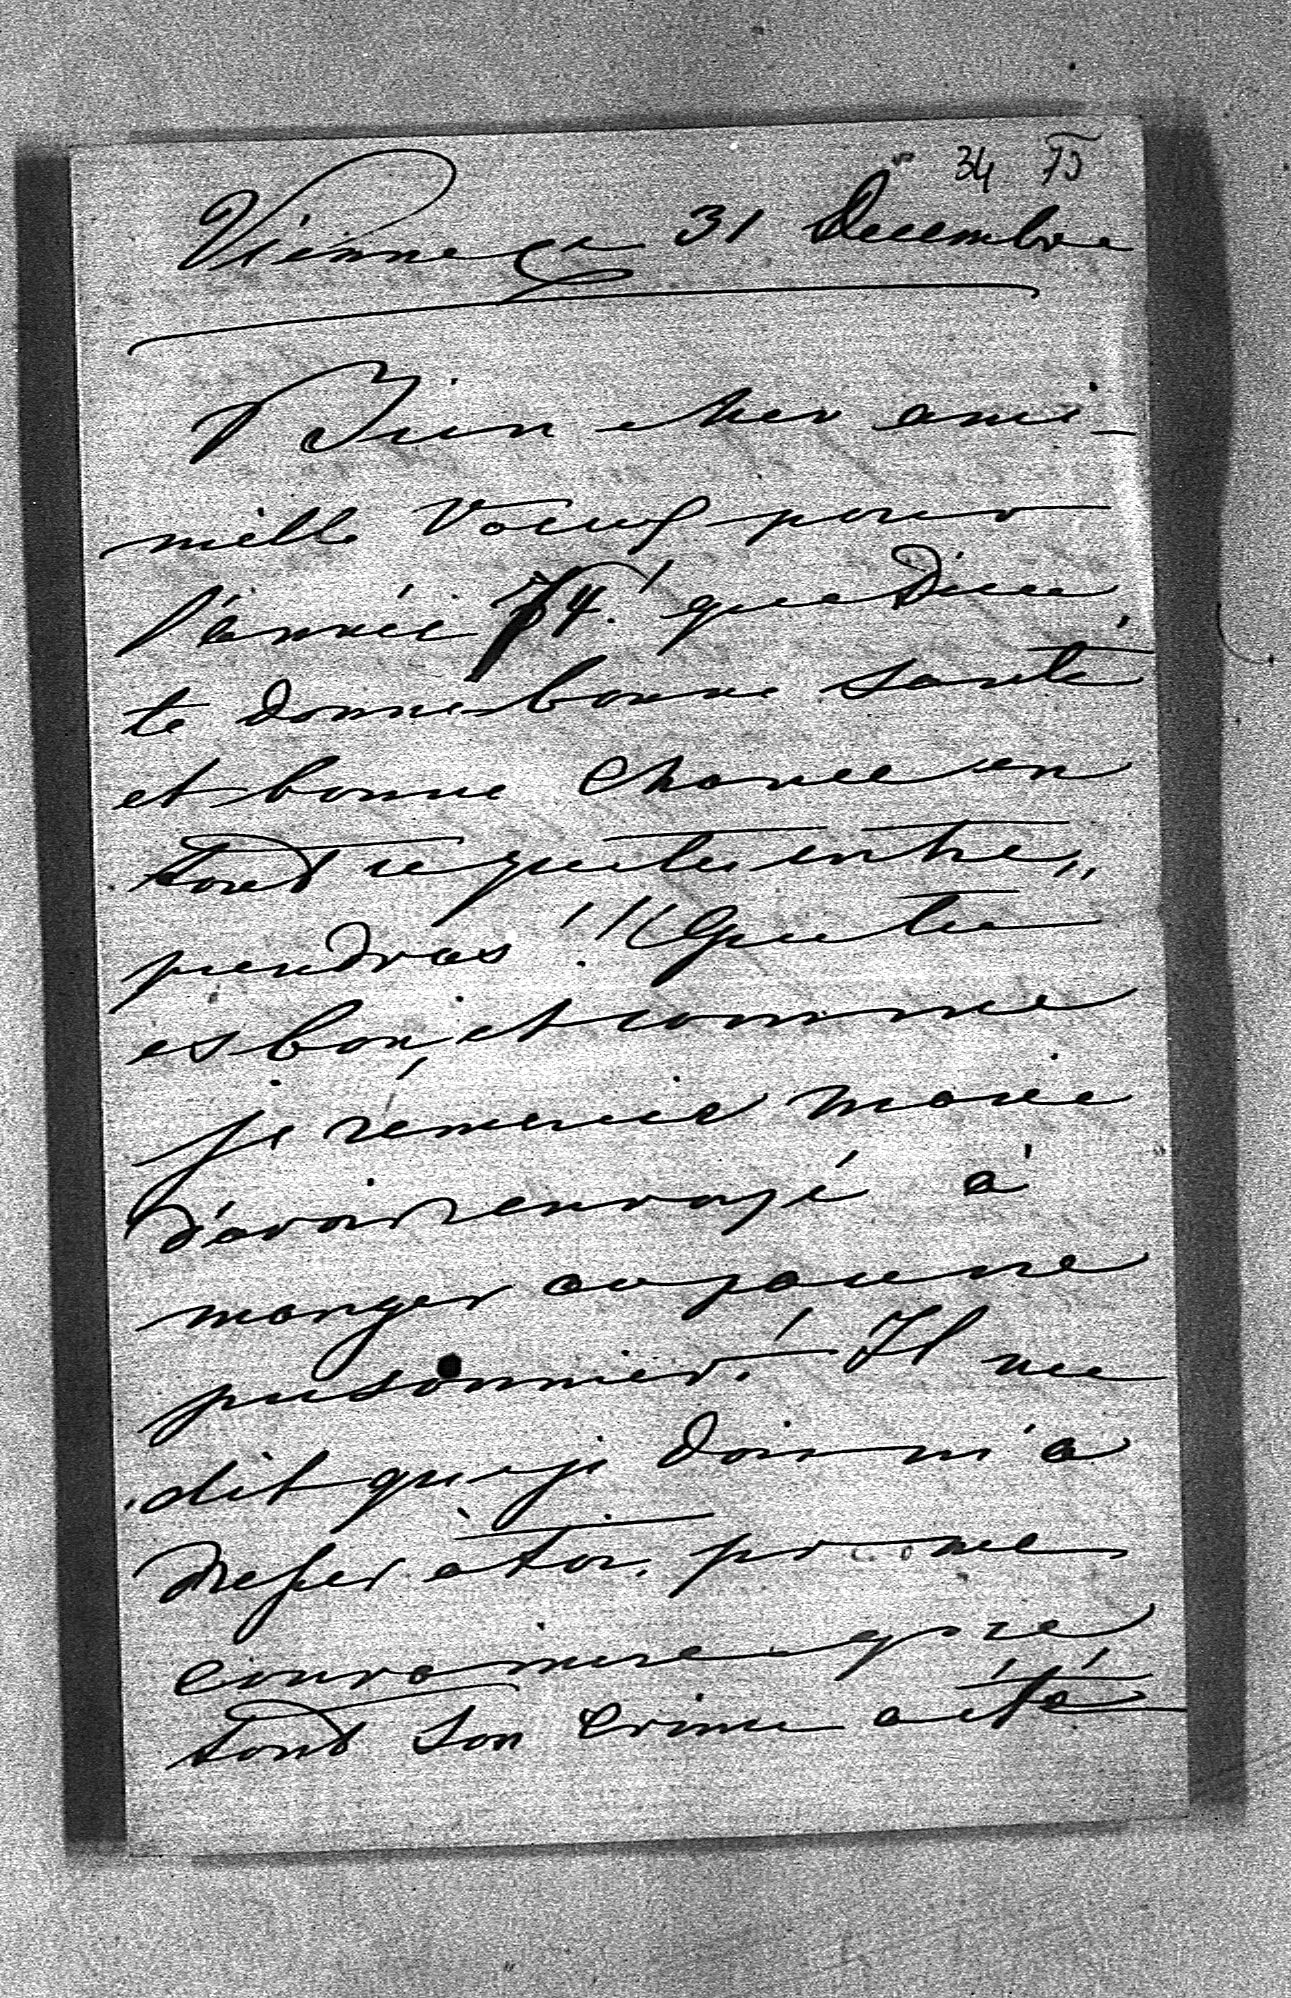 34 75
Vienne ce 31 Decembre
Bien cher ami –
mille voeux pour
l'année 74! que Dieu
te donne bonne santé
et bonne chance en
tout ce que tu entre„
prendras!! Que tu
es bon, et comme
je rémercie Marie
d'avoir envoyé à
manger au jeune
prisonnier! Il me
dit que je dois m'a
dresser à toi,
tout son crime a été